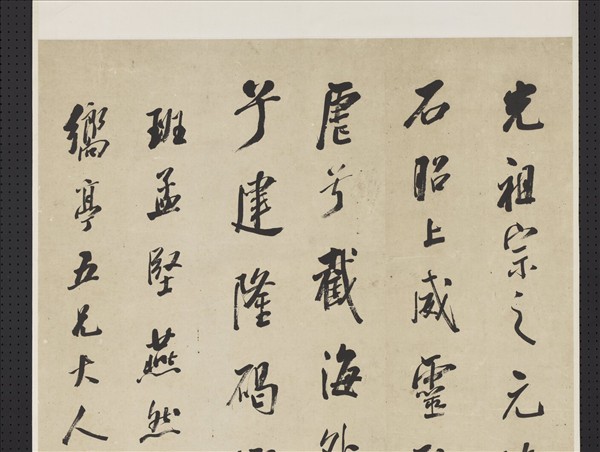 光祖宗之元
石昭上威靈
虐兮截海外
兮建隆碣
班孟堅燕然
嚮亭五兄大人